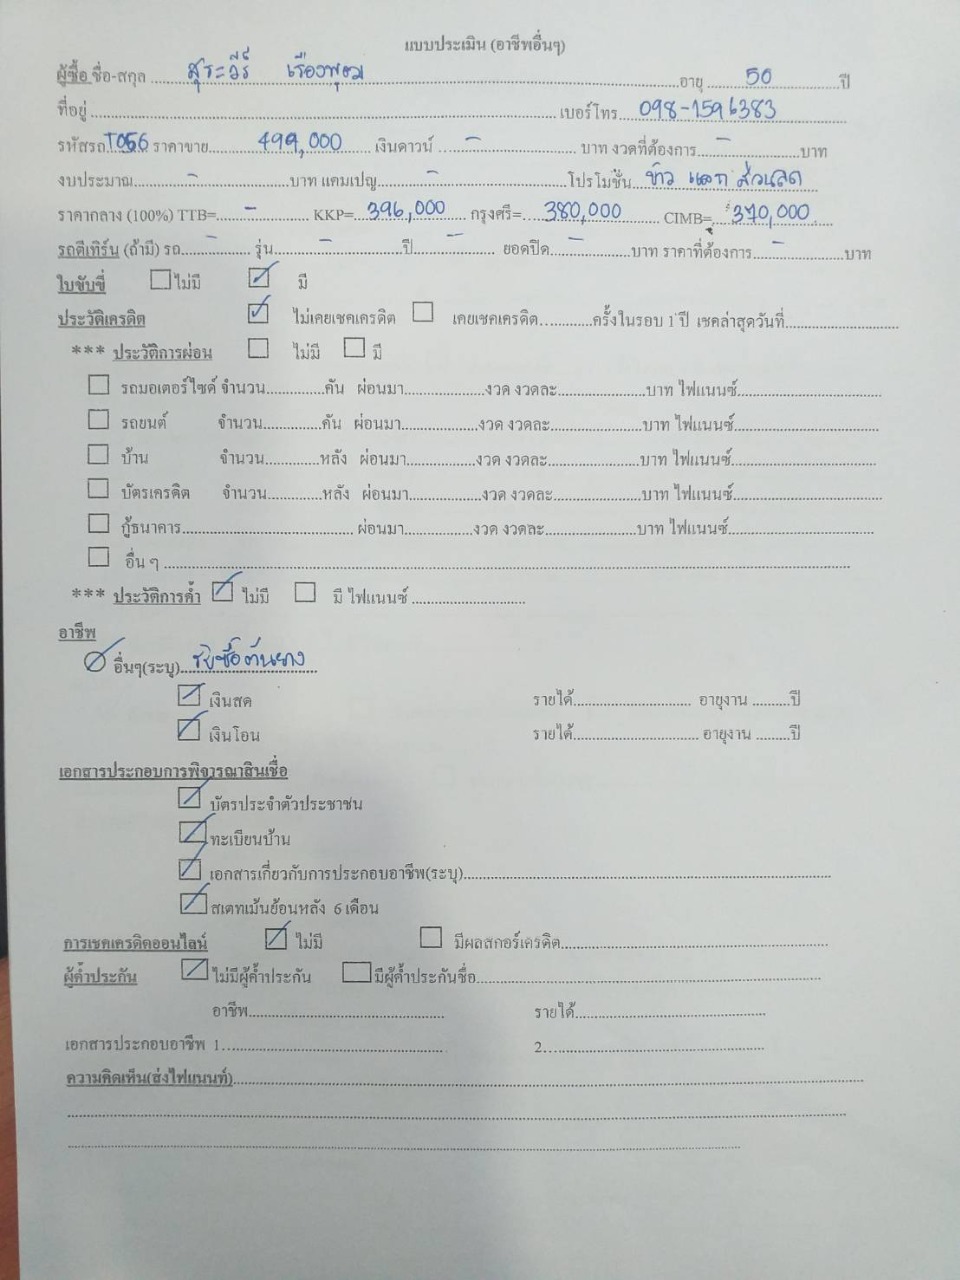 แบบประเมิน (อาชีพอื่นๆ)
ผู้ซื้อ ชื่อ-สกุล สุระวีร์ อายุ 50 ปี
ที่อยู่ เบอร์โทร 098-1596383
รหัสรถ T056 ราคาขาย 499,000 เงินดาวน์ - บาท งวดที่ต้องการ - บาท
งบประมาณ - บาท แคมเปญ - โปรโมชั่น ส่วนลด
ราคากลาง (100%) TTB= - KKP= 396,000 กรุงศรี= 380,000 CIMB= 370,000
รถตีเทิร์น (ถ้ามี) รถ - รุ่น - ปี - ยอดปิด - บาท ราคาที่ต้องการ - บาท
ใบขับขี่ ไม่มี มี
ประวัติเครดิต ไม่เคยเชคเครดิต เคยเชคเครดิต ครั้งในรอบ 1 ปี เชคล่าสุดวันที่
*** ประวัติการผ่อน ไม่มี มี
รถมอเตอร์ไซต์ จำนวน คัน ผ่อนมา งวด งวดละ บาท ไฟแนนซ์
รถยนต์ จำนวน คัน ผ่อนมา งวด งวดละ บาท ไฟแนนซ์
บ้าน จำนวน หลัง ผ่อนมา งวด งวดละ บาท ไฟแนนซ์
บัตรเครดิต จำนวน หลัง ผ่อนมา งวด งวดละ บาท ไฟแนนซ์
กู้ธนาคาร ผ่อนมา งวด งวดละ บาท ไฟแนนซ์
อื่น ๆ
*** ประวัติการค้ำ ไม่มี มี ไฟแนนซ์
อาชีพ
อื่นๆ(ระบุ) รับซื้อต้นยาง
เงินสด รายได้ อายุงาน ปี
เงินโอน รายได้ อายุงาน ปี
เอกสารประกอบการพิจารณาสินเชื่อ
บัตรประจำตัวประชาชน
ทะเบียนบ้าน
เอกสารเกี่ยวกับการประกอบอาชีพ(ระบุ)
สเตทเม้นย้อนหลัง 6 เดือน
การเชคเครดิตออนไลน์ ไม่มี มีผลสกอร์เครดิต
ผู้ค้ำประกัน ไม่มีผู้ค้ำประกัน มีผู้ค้ำประกันชื่อ
อาชีพ รายได้
เอกสารประกอบอาชีพ 1. 2.
ความคิดเห็น(ส่งไฟแนนท์)